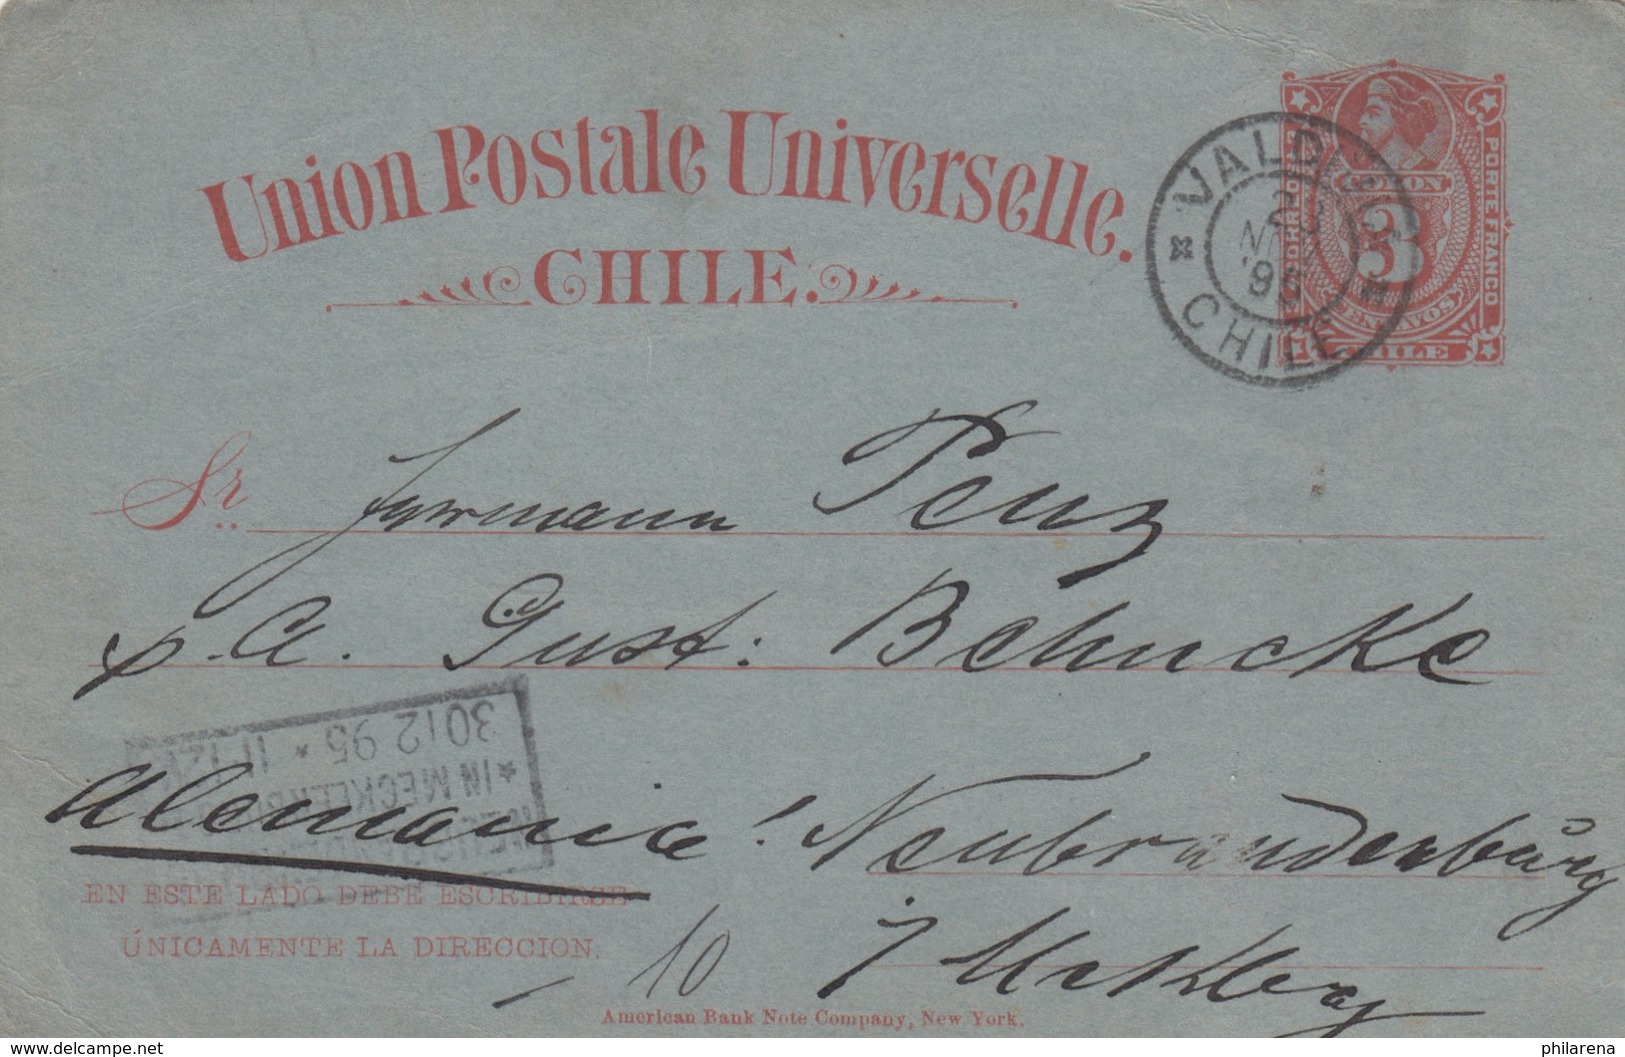 Union Postale Universelle.
CHILE.
COLON
3
CENTAVOS
CHILE
PORTE FRANCO
VALDIVIA
CHILE
95
Sr. Hermann Penz
p. A. Gust: Behncke
Alemania! Neubrandenbŭrg
i/ Mecklbg
30 12 95 * 11-12
* IN MECKLENB
NEUBRANDENB
EN ESTE LADO DEBE ESCRIBIRSE
ÚNICAMENTE LA DIRECCION.
10
American Bank Note Company, New York.
delcampe.net
philarena